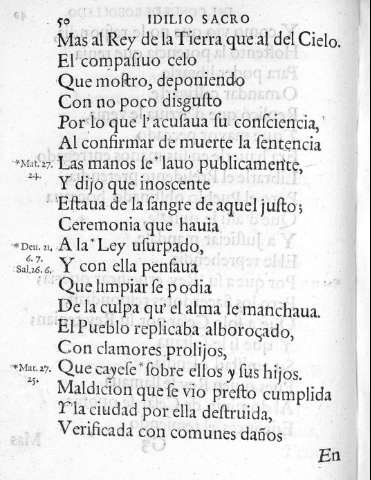 50 IDILIO SACRO
Mas al Rey de la Tierra que al del Cielo.
El compaſiuo celo
Que moſtro, deponiendo
Con no poco diſguſto
Por lo que l'acuſaua ſu conſciencia,
Al confirmar de muerte la ſentencia
*Mat. 27. 24. Las manos ſe* lauo publicamente,
Y dijo que inoscente
Eſtaua de la ſangre de aquel juſto;
Ceremonia que hauia
*Deu. 21. 6. 7. A la* Ley uſurpado,
Sal. 26. 6. Y con ella penſaua
Que limpiar ſe podia
De la culpa qu' el alma le manchaua.
El Pueblo replicaba alboroçado,
Con clamores prolijos,
*Mat. 27. 25. Que cayeſe* ſobre ellos y ſus hijos.
Maldicion que ſe vio preſto cumplida
Y la ciudad por ella deſtruida,
Verificada con comunes daños
En